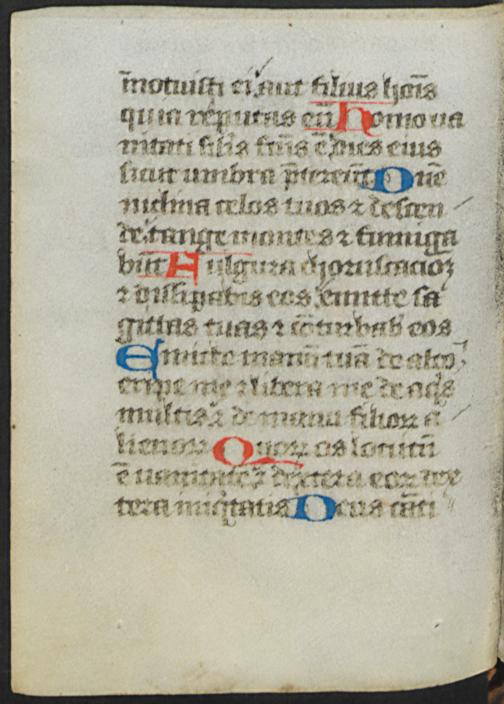 īnotuisti ei aut filius hoīs
quia reputas eū Homo va
nitati silis fcūs ē dies eius
sicut umbra p̄tereūt Dn̄e
inclina celos tuos ⁊ descen
de tange montes ⁊ fumiga
būt Fulgura choruscacioꝝ
⁊ dissipabis eos emitte sa
gittas tuas ⁊ cōturbab eos
Emitte manū tuā de alto
eripe me ⁊ libera me de aq̄s
multis ⁊ de manu filioꝝ a
lienoꝝ Quoꝝ os locutū
ē vanitatē ⁊ dextera eoꝝ dex
tera iniq̄tatis Deus cāti